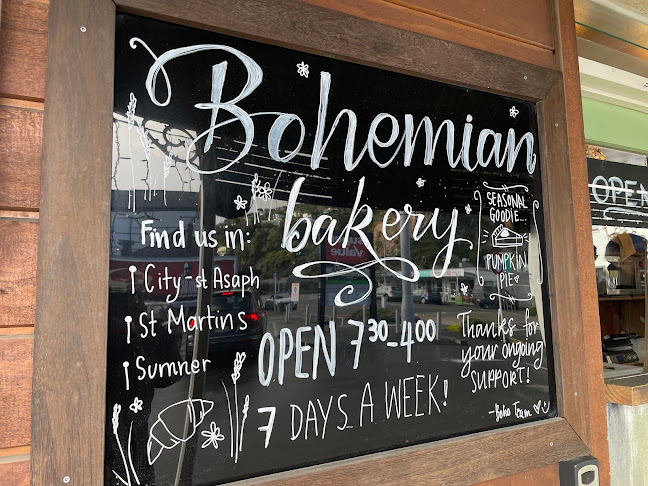 Bohemian
bakery
Find us in:
City - st Asaph
St Martins
Sumner
OPEN 7³⁰-4⁰⁰
7 DAYS A WEEK!
SEASONAL
GOODIE...
PUMPKIN
PIE
Thanks for
your ongoing
SUPPORT!
- Boho Team
OPEN
Value